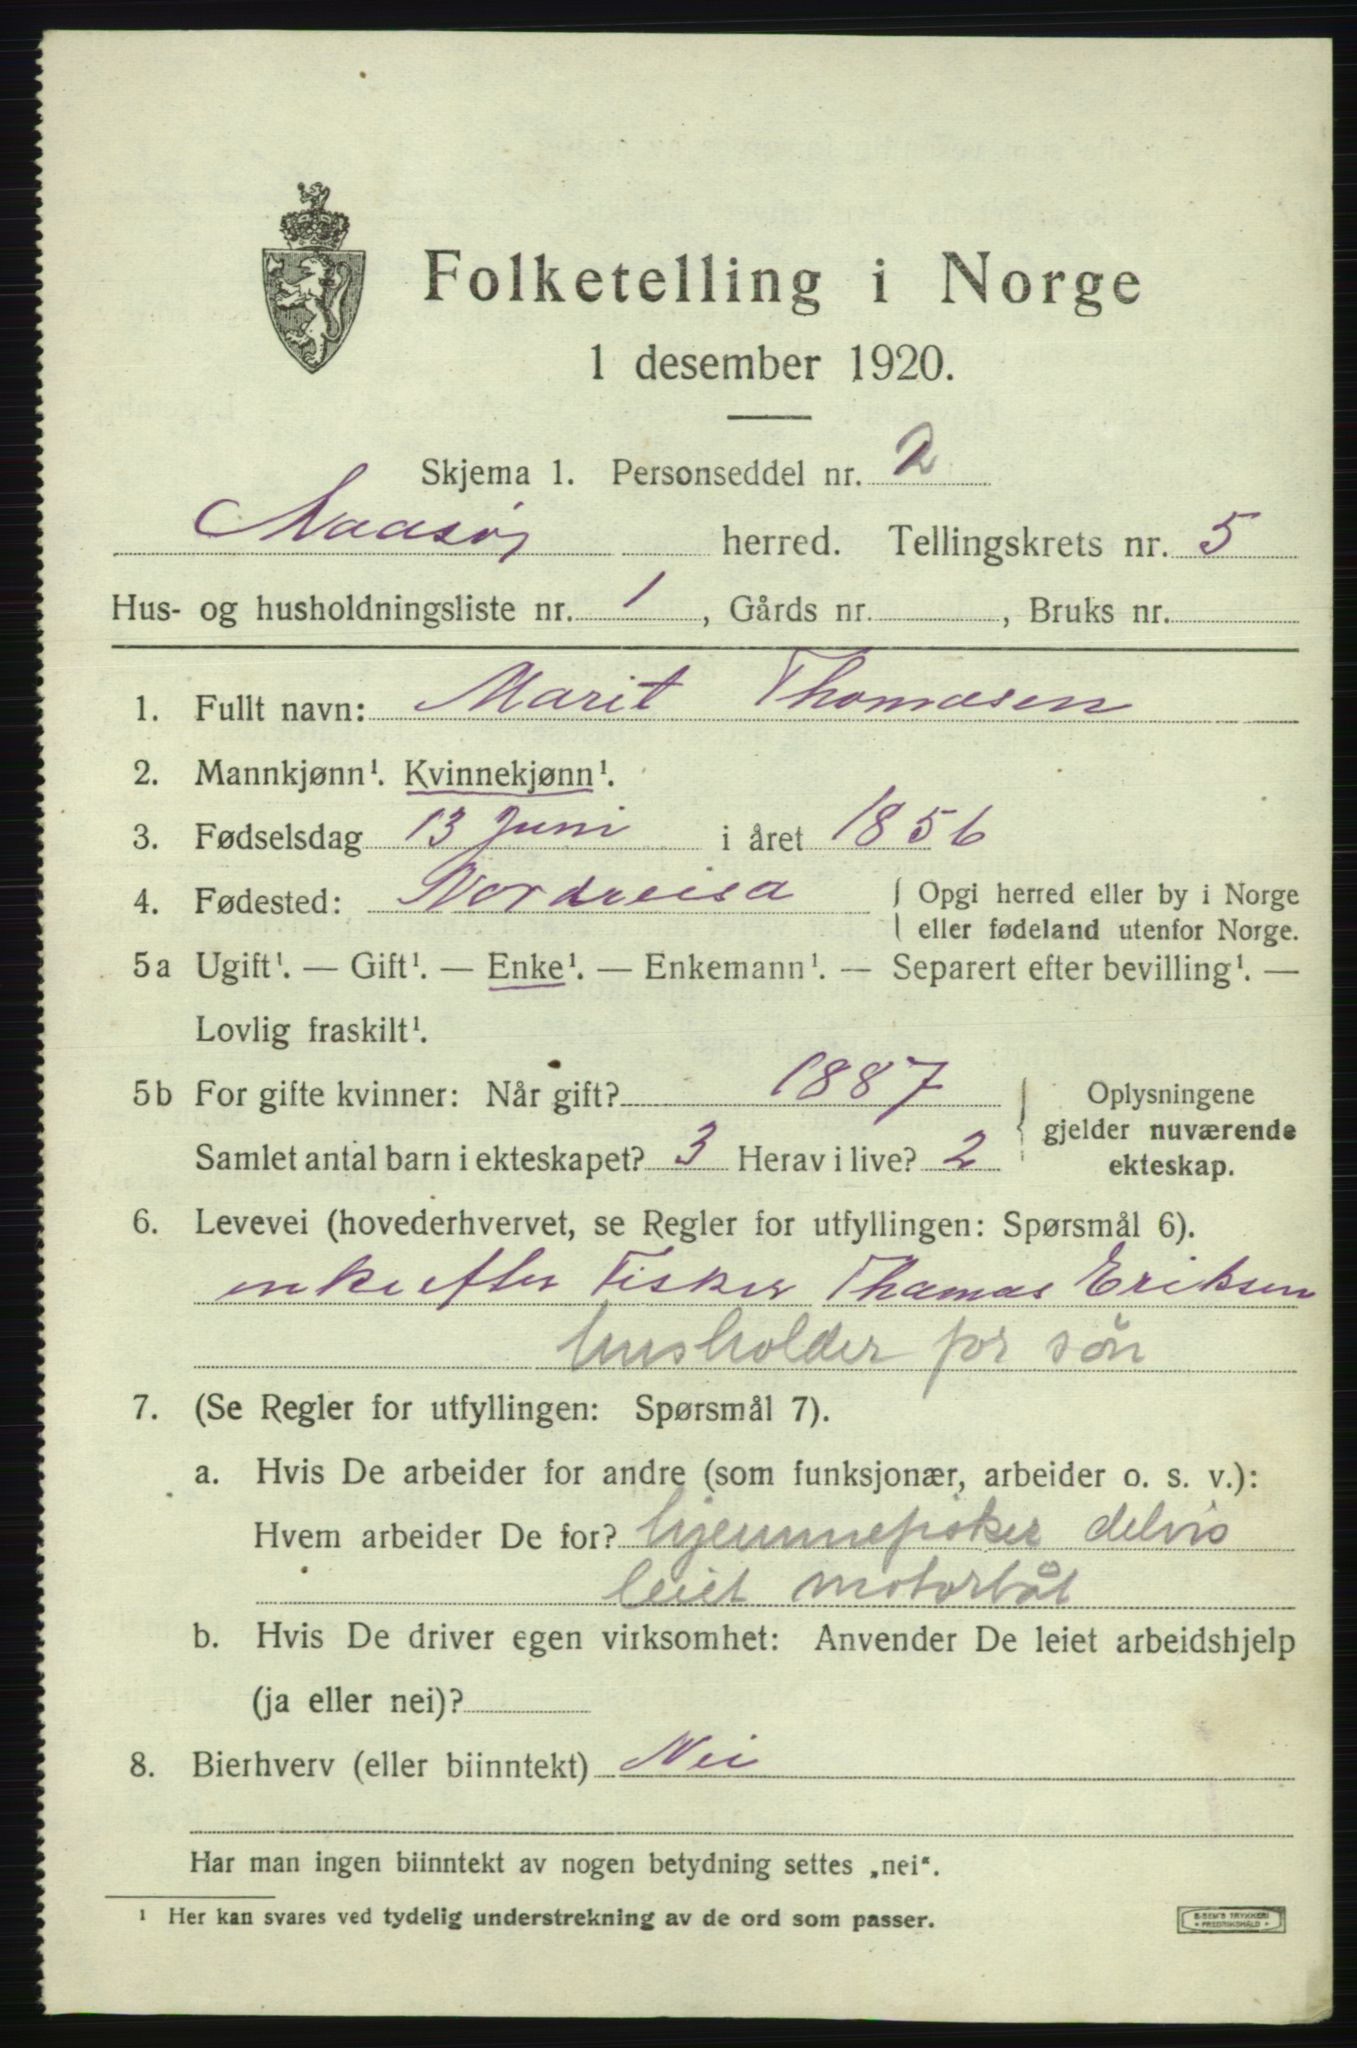 Folketelling i Norge
1 desember 1920.
Skjema 1. Personseddel nr. 2
Maasøy herred. Tellingskrets nr. 5
Hus- og husholdningsliste nr. 1, Gårds nr. , Bruks nr.
1. Fullt navn: Marit Thomasen
2. Mannkjønn¹. Kvinnekjønn¹.
3. Fødselsdag 13 Juni i året 1856
4. Fødested: Nordreisa { Opgi herred eller by i Norge
eller fødeland utenfor Norge.
5a Ugift¹. — Gift¹. — Enke¹. — Enkemann¹. — Separert efter bevilling¹. —
Lovlig fraskilt¹.
5b For gifte kvinner: Når gift? 1887
Samlet antal barn i ekteskapet? 3 Herav i live? 2
} Oplysningene
gjelder nuværende
ekteskap.
6. Levevei (hovederhvervet, se Regler for utfyllingen: Spørsmål 6).
enke efter Fisker Thomas Eriksen
husholder for søn
7. (Se Regler for utfyllingen: Spørsmål 7).
a. Hvis De arbeider for andre (som funksjonær, arbeider o. s. v.):
Hvem arbeider De for? hjemmefisker delvis
leiet motorbåt
b. Hvis De driver egen virksomhet: Anvender De leiet arbeidshjelp
(ja eller nei)?
8. Bierhverv (eller biinntekt) Nei
Har man ingen biinntekt av nogen betydning settes „nei“.
¹ Her kan svares ved tydelig understrekning av de ord som passer.
TRYKKERI
FREDRIKSHALD